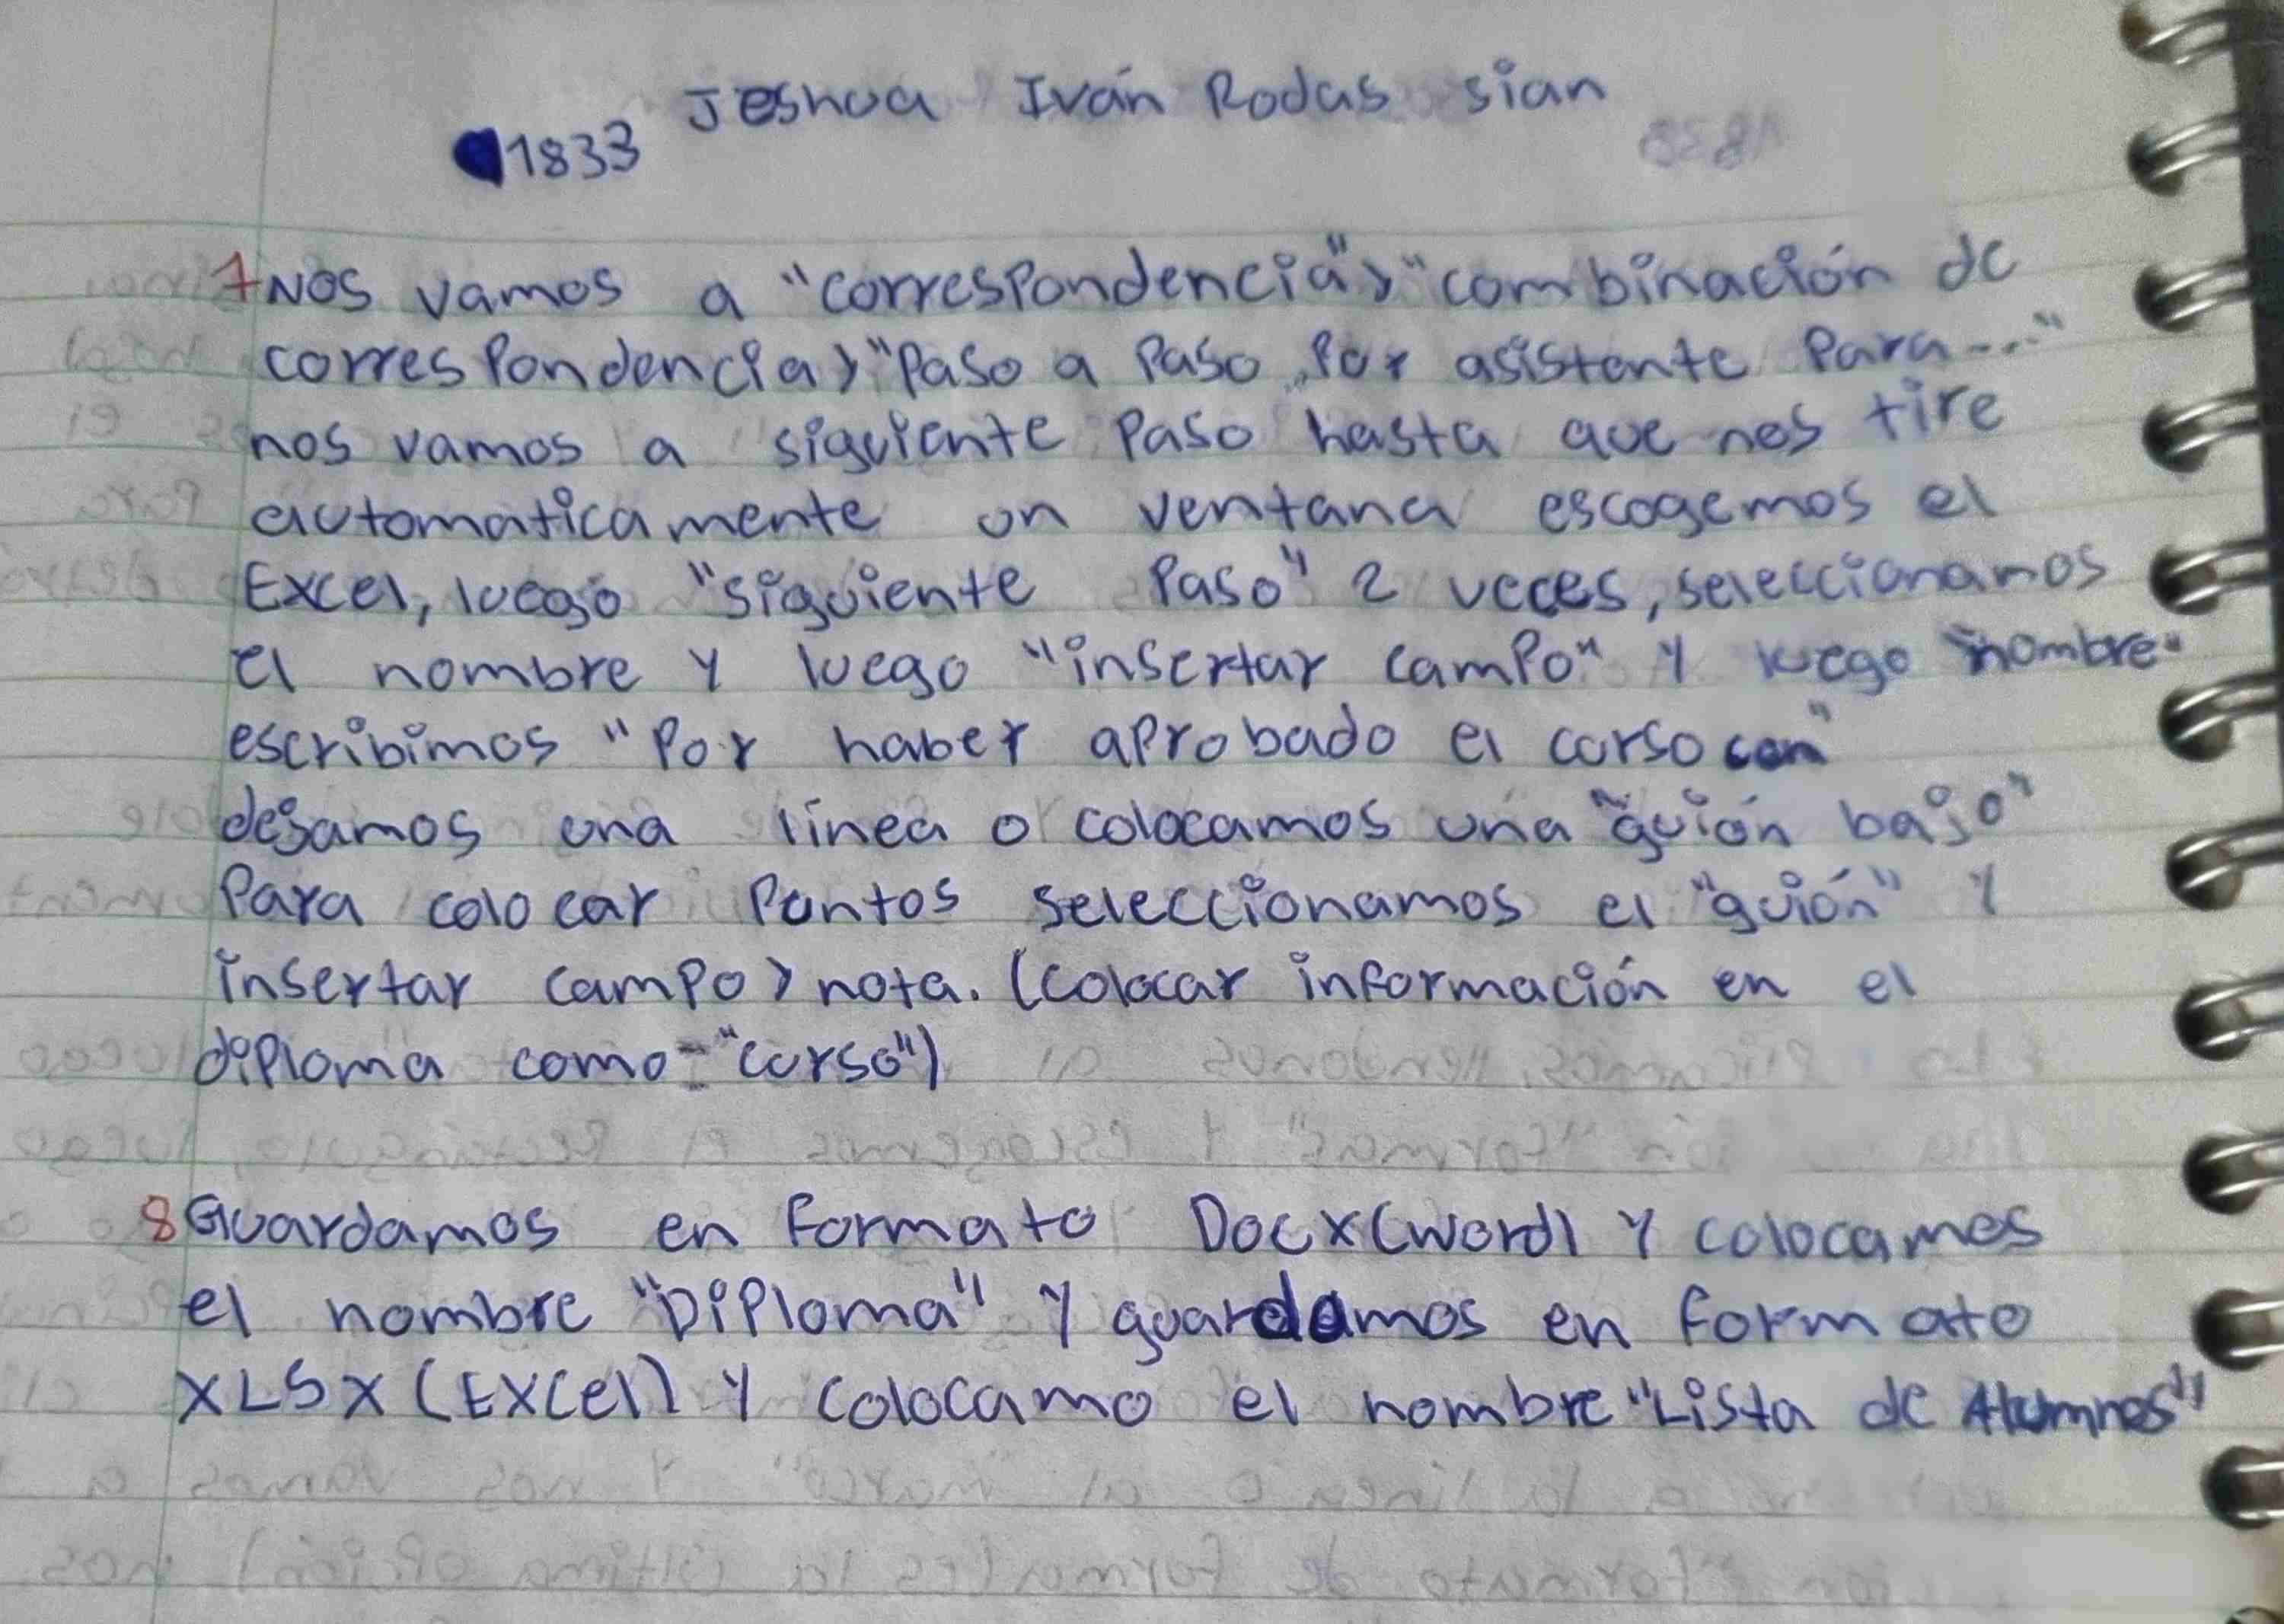 Jeshua Iván Rodas sian
1833
7 Nos vamos a "correspondencia" > "combinación de
correspondencia > "Paso a Paso por asistente Para..."
nos vamos a siguiente Paso hasta que nos tire
automaticamente un ventana escogemos el
Excel, luego "siguiente Paso" 2 veces, seleccionamos
el nombre y luego "insertar campo" y luego "nombre"
escribimos "Por haber aprobado el curso con"
dejamos una línea o colocamos una "guión bajo"
Para colocar Puntos seleccionamos el "guión" y
insertar campo > nota. (colocar información en el
diploma como "curso")
8 Guardamos en formato Docx (word) y colocamos
el nombre "Diploma" y guardamos en formato
XLSX (Excel) y colocamo el nombre "Lista de Alumnos"